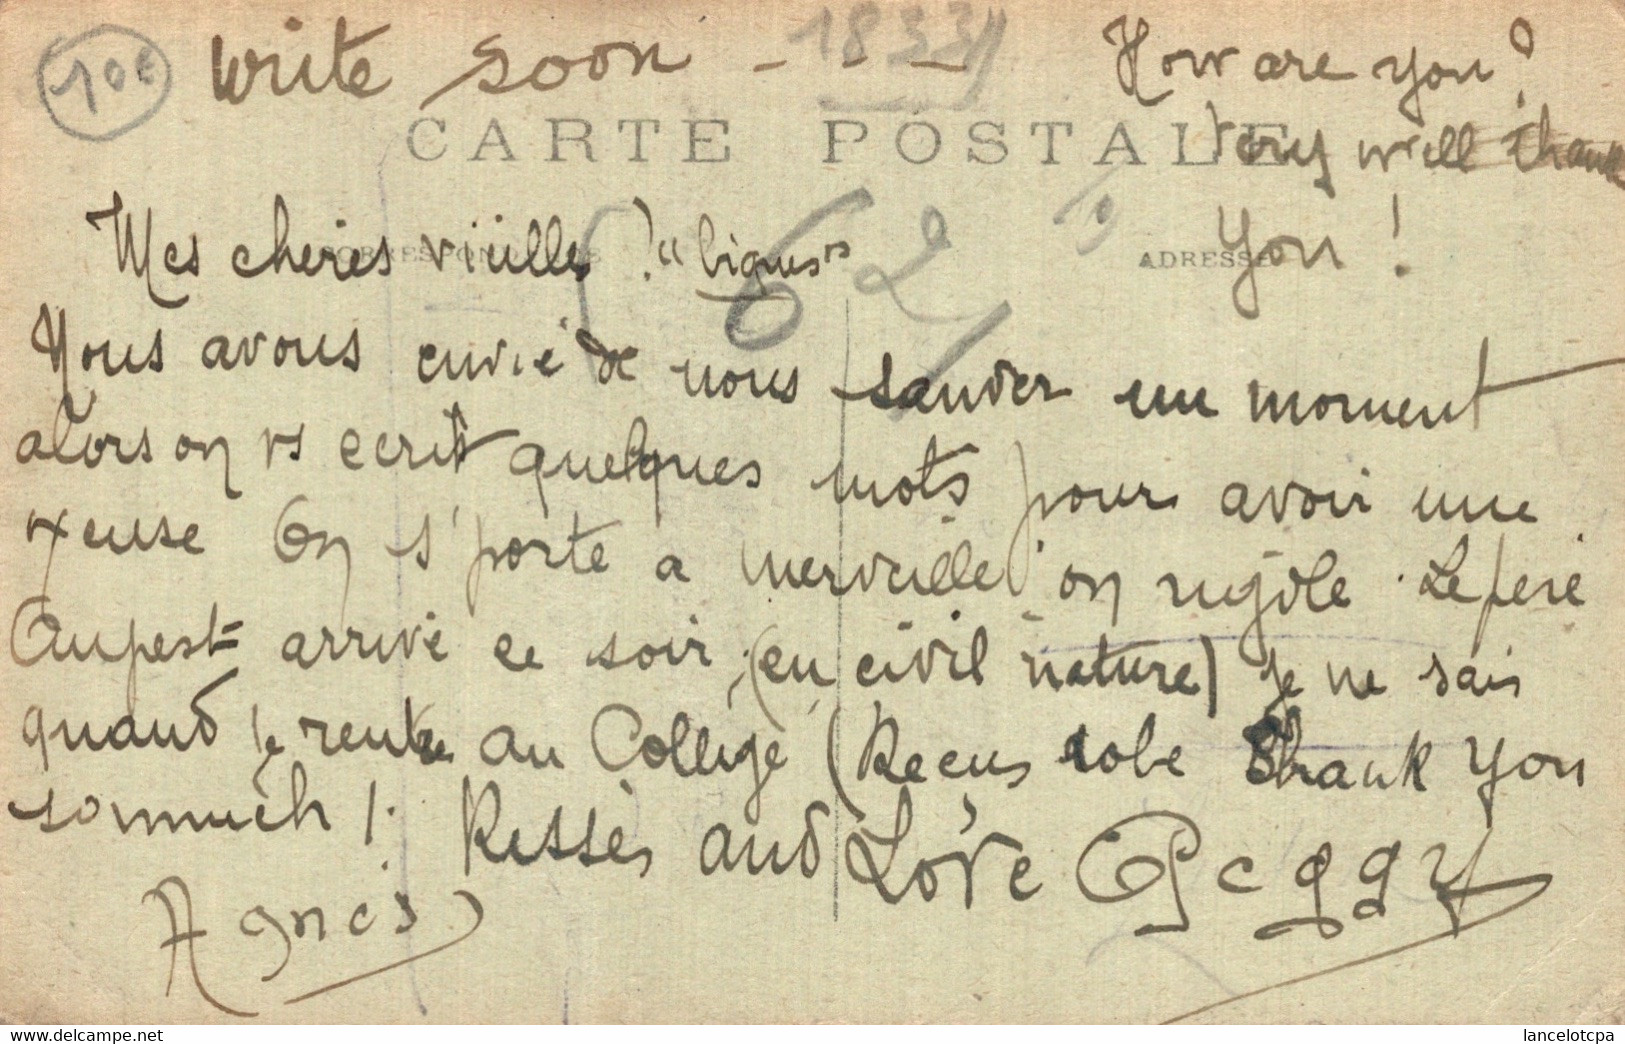 10€ write soon - 1833 - How are you?
CARTE POSTALE
Very well thank
Mes cheries vieilles ! "biques" 62
CORRESPONDANCE ADRESSE
You !
Nous avons envie de nous sauver un moment
alors on vs ecrit quelques mots pour avoir une
xeuse On s'porte a merveille on rigole. Le pere
arrive ce soir, (en civil nature) je ne sais
quand je rentre au College (Recus robe Thank You
so much ! Kisses and Love Peggy
Agnes
www.delcampe.net lancelotcpa